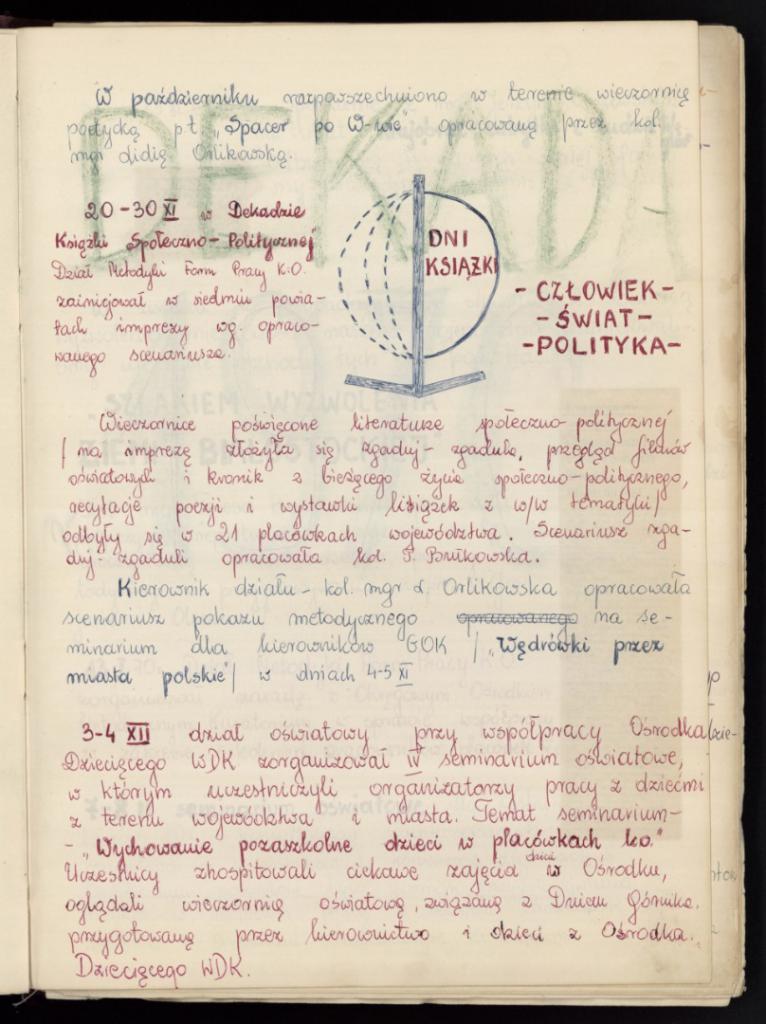 W październiku rozpowszechniono w terenie wieczornicę
poetycką p.t. „Spacer po W-wie" opracowaną przez kol.
mgr Lidię Orlikowską.
20-30 XI w Dekadzie
Książki Społeczno-Politycznej"
Dział Metodyki Form Pracy K.O.
zainicjował w siedmiu powia-
tach imprezy wg. opraco-
wanego scenariusza.
DNI
KSIĄŻKI
- CZŁOWIEK -
- ŚWIAT -
- POLITYKA -
Wieczornice poświęcone literaturze społeczno-politycznej
/na imprezę złożyła się zgaduj-zgadula, przegląd filmów
oświatowych i kronik z bieżącego życia społeczno-politycznego,
recytacje poezji i wystawki książek z w/w tematyki/
odbyły się w 21 placówkach województwa. Scenariusz zga-
duj-zgaduli opracowała kol. T. Bułkowska.
Kierownik działu - kol. mgr L. Orlikowska opracowała
scenariusz pokazu metodycznego opracowanego na se-
minarium dla kierowników GOK / „Wędrówki przez
miasta polskie"/ w dniach 4-5 XI
3-4 XII dział oświatowy przy współpracy Ośrodka
Dziecięcego WDK zorganizował IV seminarium oświatowe,
w którym uczestniczyli organizatorzy pracy z dziećmi
z terenu województwa i miasta. Temat seminarium-
- „Wychowanie pozaszkolne dzieci w placówkach k.o."
Uczestnicy zhospitowali ciekawe zajęcia dzieci w Ośrodku,
oglądali wieczornicę oświatową, związaną z Dniem Górnika,
przygotowaną przez kierownictwo i dzieci z Ośrodka
Dziecięcego WDK.
DEKADA